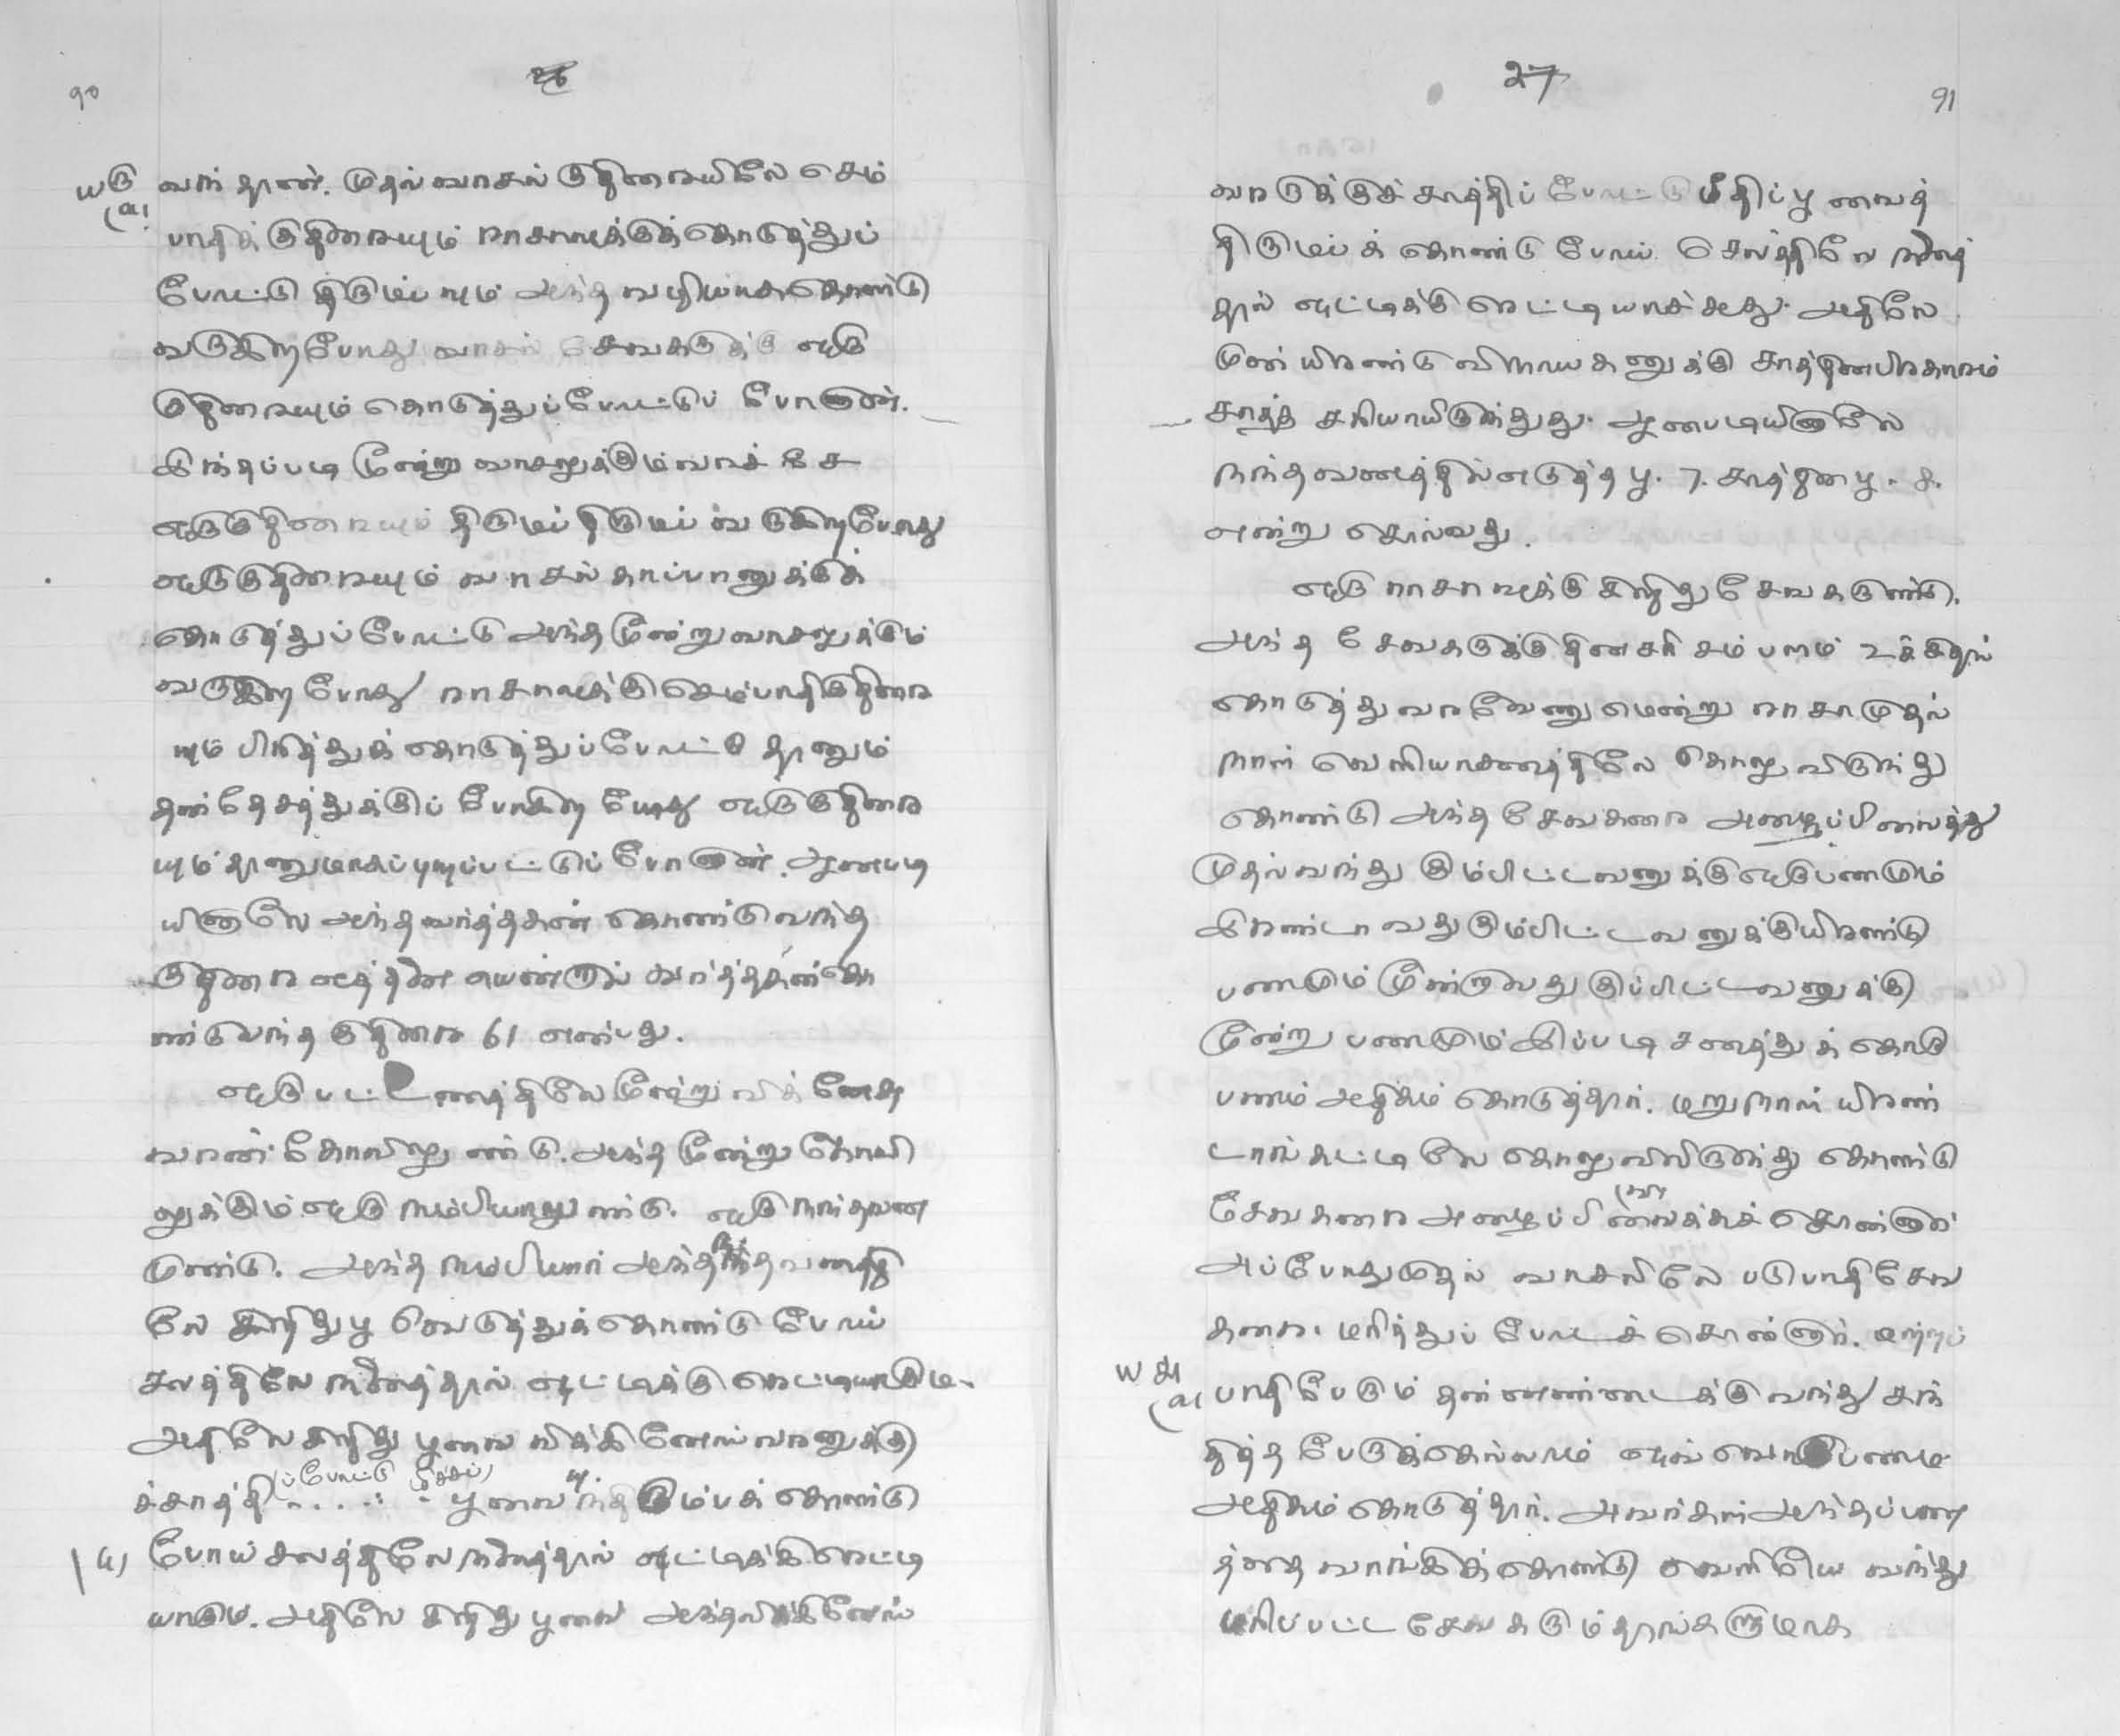 90
26
யரு வந்தான். முதல் வாசல் குதிரையிலே செம்
பாதிக் குதிரையும் ராசாவுக்குக் கொடுத்துப்
போட்டு திரும்பவும் அந்த வழியாக கொண்டு
வருகிறபோது வாசல் சேவகருக்கு ஒரு
குதிரையும் கொடுத்துப்போட்டுப் போனான்.
இந்தப்படி மூன்று வாசலுக்கும் வாச் சே
ஒருகுதிரையும் திரும்பி திரும்பி வருகிறபோது
ஒருகுதிரையும் வாசல் காப்பானுக்குக்
கொடுத்துப்போட்டு அந்த மூன்று வாசலுக்கும்
வருகிற போது ராசாவுக்கு செம்பாதிகுதிரை
யும் பிரித்துக் கொடுத்துப்போட்டு தானும்
தன் தேசத்துக்குப் போகிற போது ஒருகுதிரை
யும் தானுமாகப் புறப்பட்டுப் போனான். ஆனபடி
யினாலே அந்த வர்த்தகன் கொண்டு வந்த
குதிரை எத்தனை யென்றால் வர்த்தகன் கொ
ண்டுவந்த குதிரை 61 என்பது.
ஒரு பட்டணத்திலே மூன்று விக்னேசு
வரன் கோவிலுண்டு. அந்த மூன்று கோவி
லுக்கும் ஒரு நம்பியாருண்டு. ஒரு நந்தவன
முண்டு. அந்த நம்பியார் அந்த நந்தவனத்தி
லே கிறிது பூ வெடுத்துக் கொண்டு போய்
சலத்திலே நனைத்தால் ஒட்டிக்கு ரெட்டியாகும்.
அதிலே கிறிது பூவை விக்கினேஸ்வரனுக்கு
ச்சாத்திப்போட்டு மீச்சப் பூவை திரும்பக் கொண்டு
போய் சலத்திலே நனைத்தால் ஒட்டிக்கி ரெட்டி
யாகும். அதிலே கிறிது பூவை அந்தவிக்கினேஸ்
27
91
வரருக்குச் சாத்திப் போட்டு மீதிப் பூ வைத்
திரும்பக் கொண்டு போய் செலத்திலே நனைத்
தால் ஒட்டிக்கு ரெட்டியாச்சுது. அதிலே
முன் யிரண்டு விநாயகனுக்கு சாத்தினபிரகாரம்
சாத்த சரியாயிருந்துது. ஆனபடியினாலே
நந்தவனத்தில் எடுத்த பூ. 7. சாத்தின பூ. 8.
என்று சொல்வது.
ஒரு ராசாவுக்கு கிறிது சேவகருண்டு.
அந்த சேவகருக்கு தினசரி சம்பளம்
கொடுத்து வரவேணுமென்று ராசா முதல்
நாள் வெளியாசனத்திலே கொலுவிருந்து
கொண்டு அந்த சேவகரை அழைப்பிவைத்து
முதல் வந்து கும்பிட்டவனுக்கு ஒருபணமும்
இரண்டாவது கும்பிட்டவனுக்கு யிரண்டு
பணமும் மூன்றாவது கும்பிட்டவனுக்கு
மூன்று பணமும் இப்படி சனத்துக்கொரு
பணம் அதிகம் கொடுத்தார். மறுநாள் யிரண்
டாங்கட்டிலே கொலுவிலிருந்து கொண்டு
சேவகரை அழைப்பிவைக்கச் சொன்னார்
அப்போது முதல் வாசலிலே படுபாதி சேவ
கரை மரித்துப் போடச் சொன்னார். மற்றப்
பாதி பேரும் தன்னண்டைக்கு வந்து சந்
தித்த பேருக்கெல்லாம் ஒவ்வொருபணம்
அதிகம் கொடுத்தார். அவர்கள் அந்தப் பண
த்தை வாங்கிக் கொண்டு வெளியே வந்து
மரிப்பட்ட சேவகரும் தாங்களுமாக